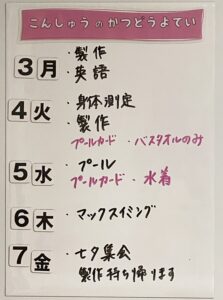 こんしゅうのかつどうよてい
3月 ・製作
・英語
4火 ・身体測定
・製作
プールカード・バスタオルのみ
5水 ・プール
プールカード・水着
6木 ・マックスイミング
7金 ・七夕集会
製作持ち帰ります